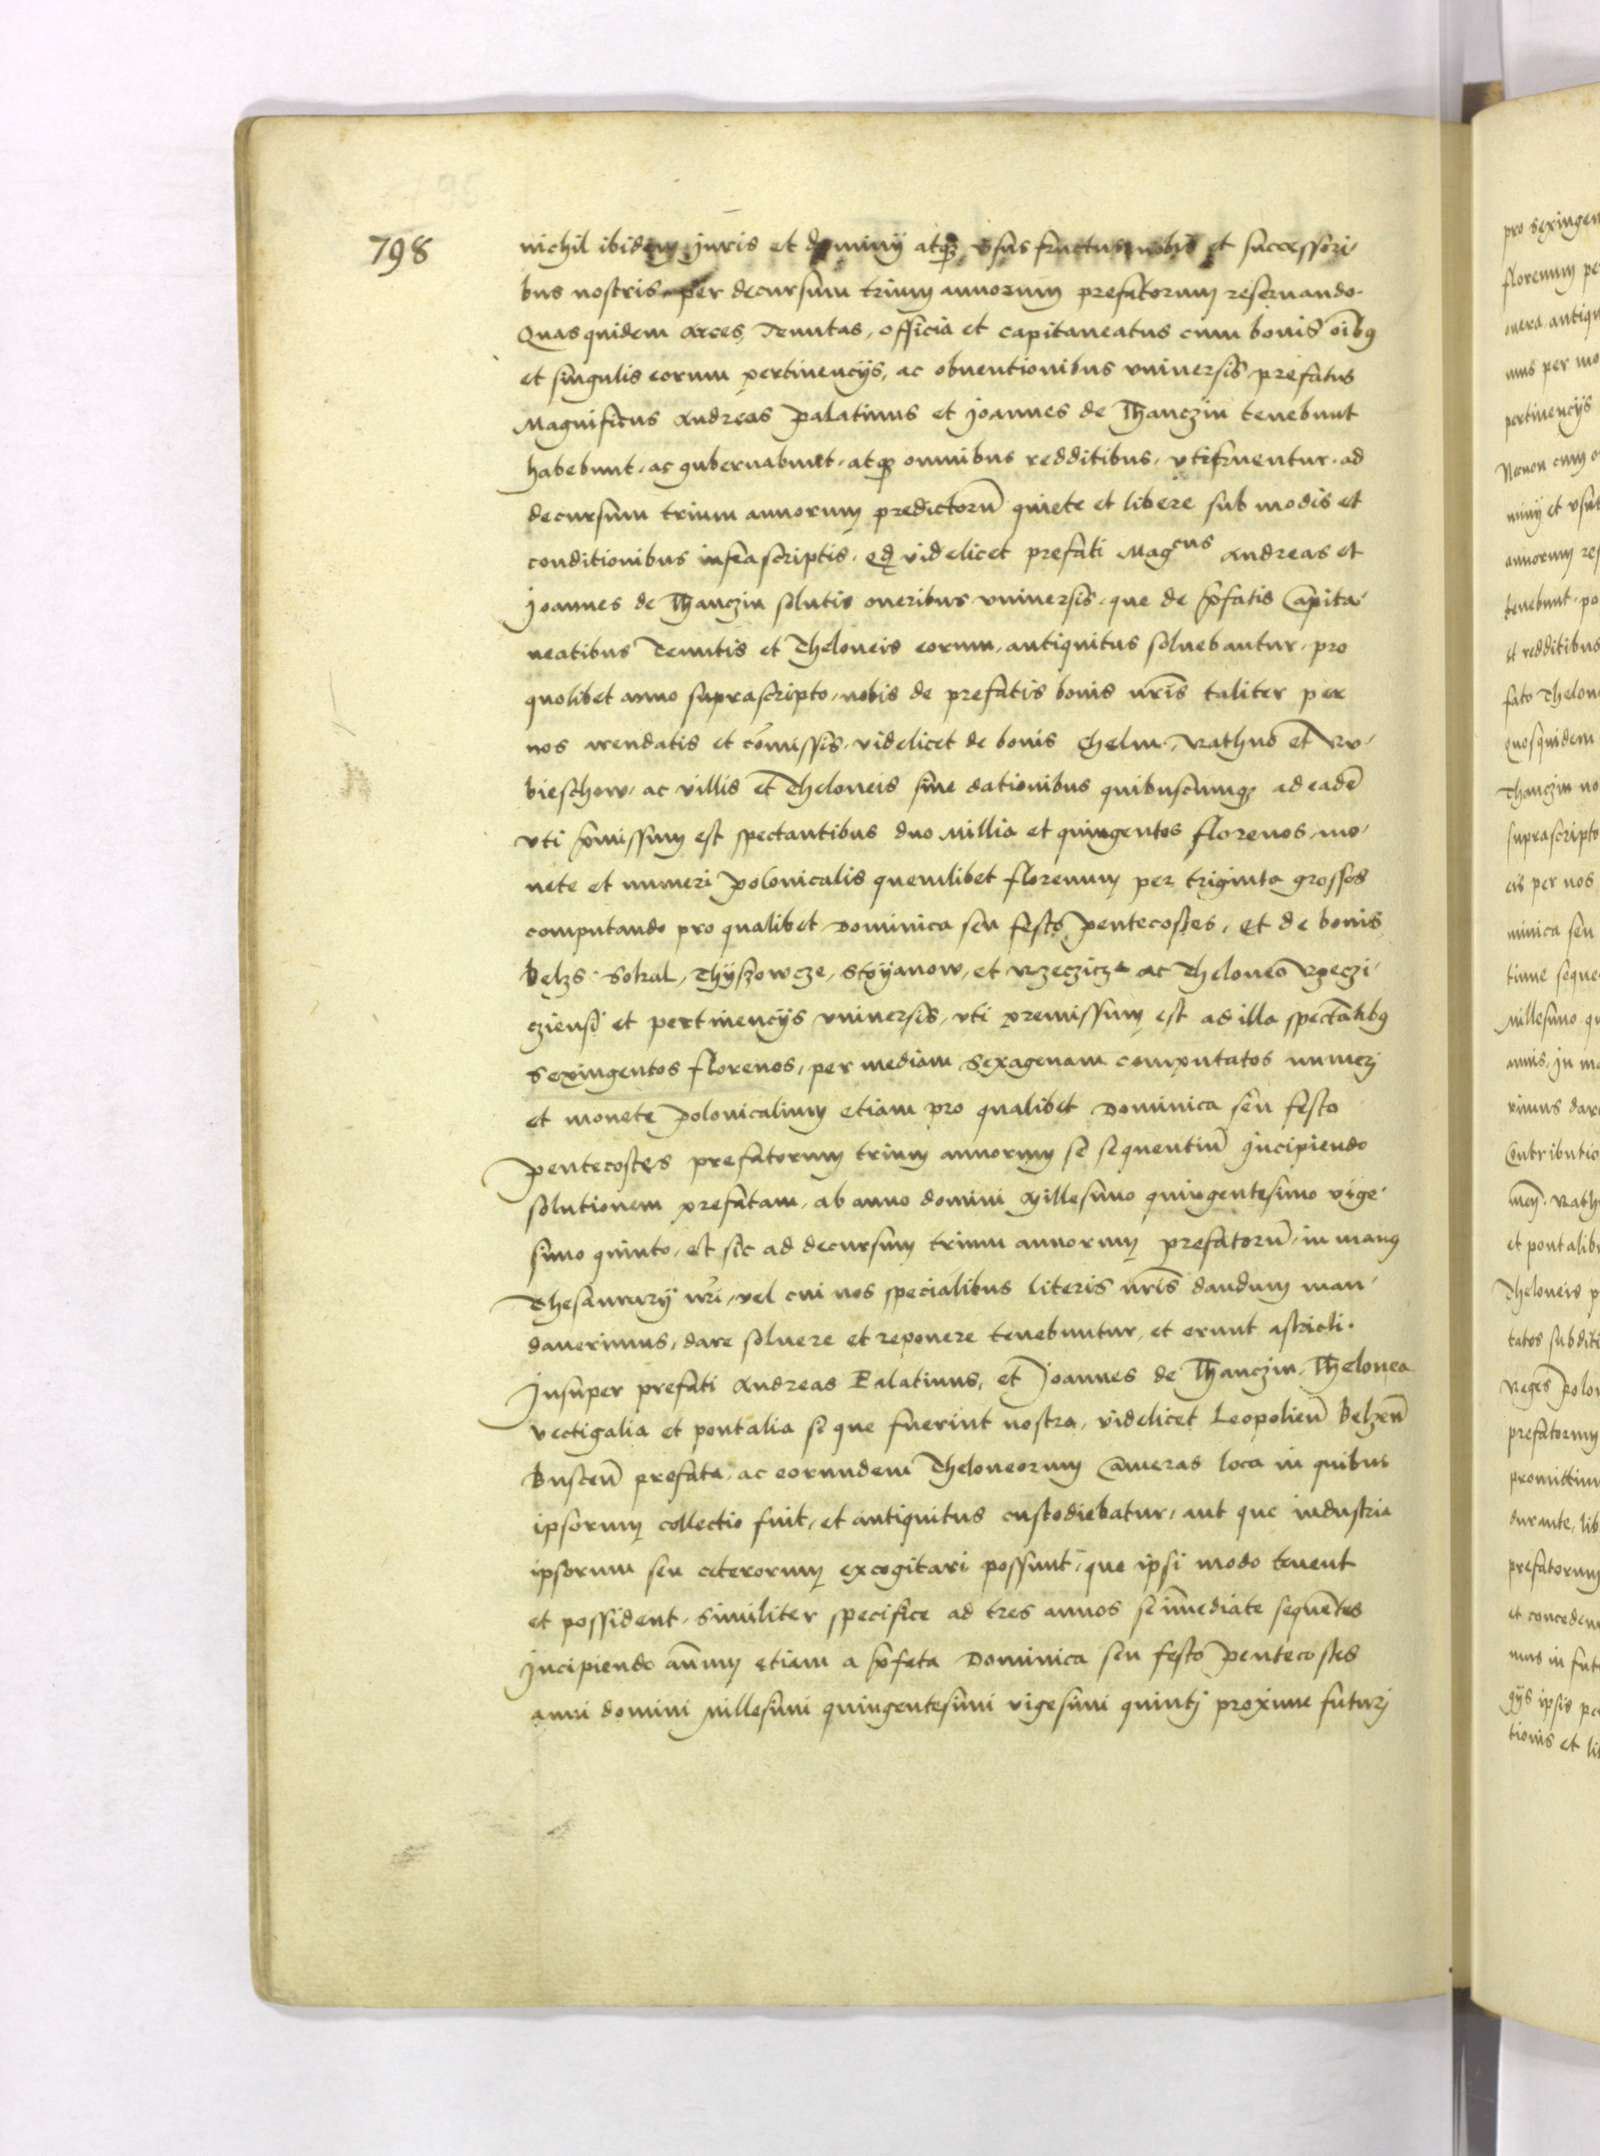 798
nichil ibidem juris et dominij atqȝ vsus fructus nobis et successori-
bus nostris per decursum trium annorum prefatorum reseruando.
Quasquidem Arces, Tenutas, officia et capitaneatus cum bonis oībꝫ
et singulis eorum pertinencijs, ac obuentionibus vniuersis prefatus
Magnificus Andreas Palatinus et Joannes de Thanczin tenebunt
habebunt, ac gubernabunt, atqȝ omnibus redditibus, vtifruentur, ad
decursum trium annorum predictorū quiete et libere sub modis et
conditionibus infrascriptis, videlicet prefati Magcus Andreas et
Joannes de Thanczin solutis oneribus vniuersis, que de p̄fatis Capita-
neatibus Tenutis et Theloneis eorum, antiquitus soluebantur, pro
quolibet anno suprascripto, nobis de prefatis bonis nr̄is taliter per
nos arendatis et cōmissis, videlicet de bonis Chelm, Rathno et Ru-
bieschow, ac villis et Theloneis siue dationibus quibuscumqȝ ad eadē
vti p̄missum est spectantibus duo Millia et quingentos florenos, mo-
nete et numeri Polonicalis quemlibet florenum per triginta grossos
computando pro qualibet Dominica seu festo Pentecostes, Et de bonis
Belzs, Sokal, Thyszowcze, Stoyanow, et Rzeczicza ac Theloneo Rzeczi-
cziensi et pertinencijs vniuersis, vti premissum est ad illa spectātibꝫ
Sexingentos florenos, per mediam Sexagenam computatos numerj
et monete Polonicalium etiam pro qualibet Dominica seu festo
Pentecostes prefatorum trium annorum se sequentiū Incipiendo
solutionem prefatam, ab anno domini Millesimo quingentesimo vige-
simo quinto, et sic ad decursum trium annorum prefatorū, in manꝫ
Thesaurarij nr̄i, vel cui nos specialibus literis nr̄is dandum man-
dauerimus, dare soluere et reponere tenebuntur, et erunt astricti.
Insuper prefati Andreas Palatinus, et Joannes de Thanczin, Thelonea
vectigalia et pontalia si que fuerint nostra, videlicet Leopolień Belzeń
Busceń prefata, ac eorundem Theloneorum Cameras loca in quibus
ipsorum collectio fuit, et antiquitus custodiebatur, aut que industria
ipsorum seu ceterorum excogitari possunt, que ipsi modo tenent
et possident, similiter specifice ad tres annos se īmediate sequētes
Incipiendo annum etiam a p̄fata Dominica seu festo Pentecostes
anni domini Millesimi quingentesimi vigesimi quintj proxime futurj
pro sexingen
florenum pe
onera antiqu
mus per mo
pertinencijs
Necnon cum o
minij et vsuf
annorum res
tenebunt, po
et redditibus
fato Thelon
Quosquidem
Thanczin no
suprascripto
eis per nos
minica seu
time seque
Millesimo qu
annis, In ma
rimus dare
Contributio
Rath
et pontalib
Theloneis p
tatos subditi
Reges Polon
prefatorum
promittim
durante, lib
prefatorum
et conceden
mus in fut
gijs ipsis pe
tionis et lit